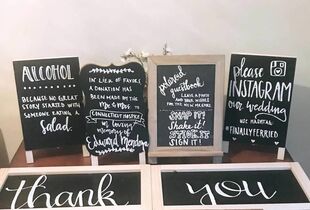 ALCOHOL
BECAUSE NO GREAT
STORY STARTED WITH
SOMEONE EATING A
Salad.
IN LIEU OF FAVORS
A DONATION HAS
BEEN MADE BY THE
Mr & Mrs
TO
CONNECTICUT HOSPICE
in loving
memory of
Edward
polaroid
guestbook
LEAVE A PHOTO
AND YOUR WISHES
FOR THE NEW MR & MRS
SNAP IT!
SHAKE IT
STICK IT
SIGN IT!
please
INSTAGRAM
our wedding
USE HASHTAG
#FINALLYFERRIED
thank
you